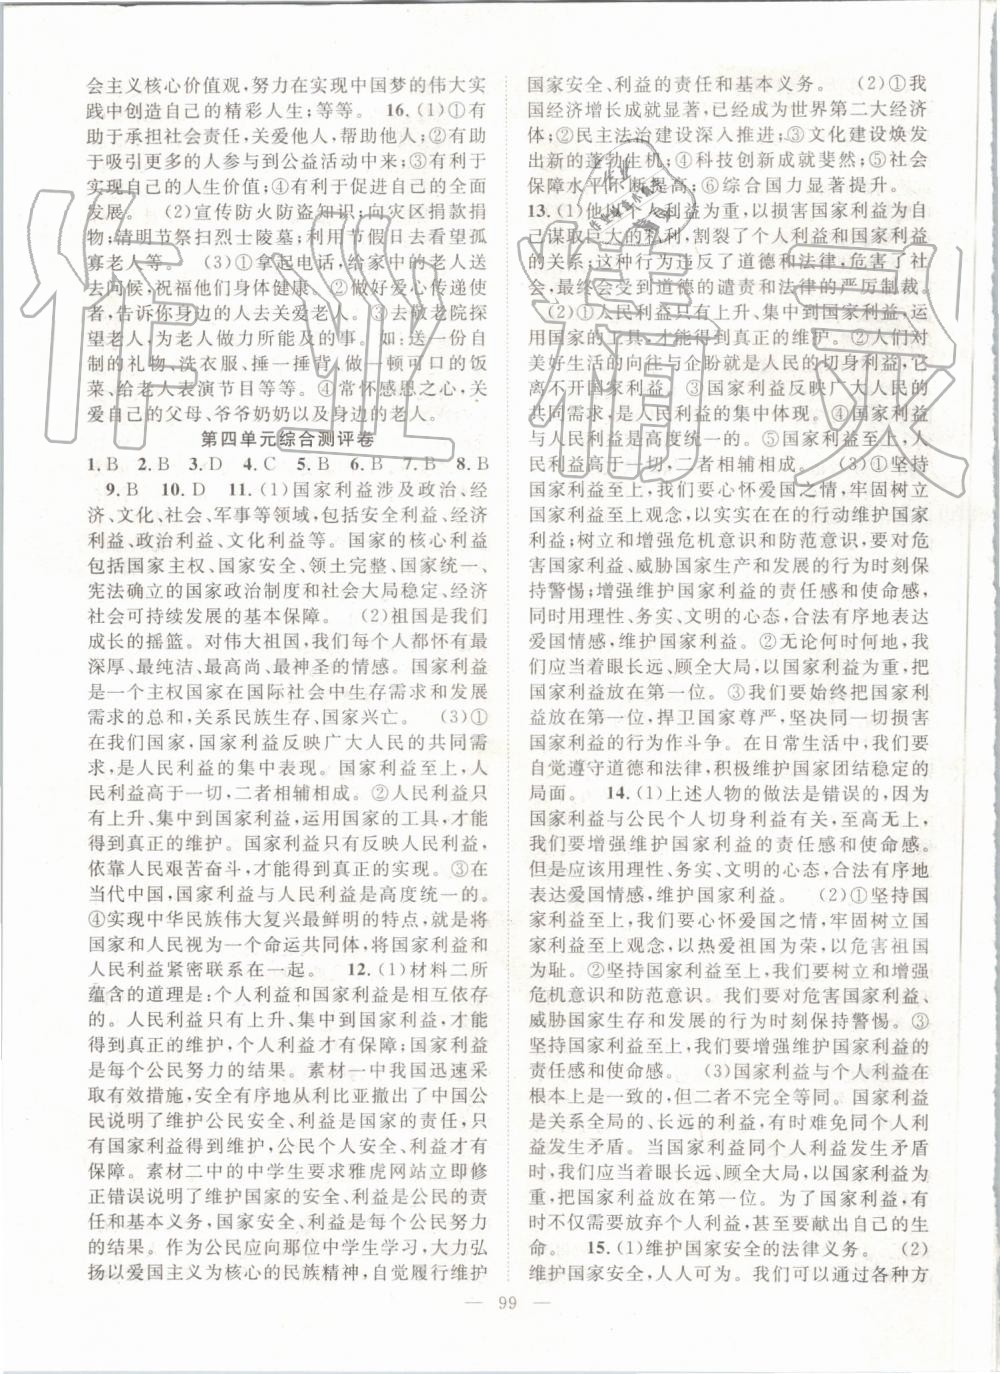 会主义核心价值观,努力在实现中国梦的伟大实
践中创造自己的精彩人生;等等。 16.(1)①有
助于承担社会责任,关爱他人,帮助他人;②有助
于吸引更多的人参与到公益活动中来;③有利于
实现自己的人生价值;④有利于促进自己的全面
发展。 (2)宣传防火防盗知识;向灾区捐款捐
物;清明节祭扫烈士陵墓;利用节假日去看望孤
寡老人等。 (3)①拿起电话,给家中的老人送
去问候,祝福他们身体健康。②做好爱心传递使
者,告诉你身边的人去关爱老人。③去敬老院探
望老人,为老人做力所能及的事。如:送一份自
制的礼物、洗衣服、捶一捶背、做一顿可口的饭
菜、给老人表演节目等等。④常怀感恩之心,关
爱自己的父母、爷爷奶奶以及身边的老人。
第四单元综合测评卷
1.B 2.B 3.D 4.C 5.B 6.B 7.B 8.B
9.B 10.D 11.(1)国家利益涉及政治、经
济、文化、社会、军事等领域,包括安全利益、经济
利益、政治利益、文化利益等。国家的核心利益
包括国家主权、国家安全、领土完整、国家统一、
宪法确立的国家政治制度和社会大局稳定、经济
社会可持续发展的基本保障。 (2)祖国是我们
成长的摇篮。对伟大祖国,我们每个人都怀有最
深厚、最纯洁、最高尚、最神圣的情感。国家利益
是一个主权国家在国际社会中生存需求和发展
需求的总和,关系民族生存、国家兴亡。 (3)①
在我们国家,国家利益反映广大人民的共同需
求,是人民利益的集中表现。国家利益至上,人
民利益高于一切,二者相辅相成。②人民利益只
有上升、集中到国家利益,运用国家的工具,才能
得到真正的维护。国家利益只有反映人民利益,
依靠人民艰苦奋斗,才能得到真正的实现。③在
当代中国,国家利益与人民利益是高度统一的。
④实现中华民族伟大复兴最鲜明的特点,就是将
国家和人民视为一个命运共同体,将国家利益和
人民利益紧密联系在一起。 12.(1)材料二所
蕴含的道理是:个人利益和国家利益是相互依存
的。人民利益只有上升、集中到国家利益,才能得
到真正的维护,个人利益才有保障;国家利益是
每个公民努力的结果。素材一中我国迅速采
取有效措施,安全有序地从利比亚撤出了中国公
民说明了维护公民安全、利益是国家的责任,只
有国家利益得到维护,公民个人安全、利益才有
保障。素材二中的中学生要求雅虎网站立即修
正错误说明了维护国家的安全、利益是公民的责
任和基本义务,国家安全、利益是每个公民努力
的结果。作为公民应向那位中学生学习,大力弘
扬以爱国主义为核心的民族精神,自觉履行维护
国家安全、利益的责任和基本义务。 (2)①我
国经济增长成就显著,已经成为世界第二大经济
体;②民主法治建设深入推进;③文化建设焕发
出新的蓬勃生机;④科技创新成就斐然;⑤社会
保障水平不断提高;⑥综合国力显著提升。
13.(1)他以个人利益为重,以损害国家利益为自
己谋取巨大的私利,割裂了个人利益和国家利益
的关系;这种行为违反了道德和法律,危害了社
会,最终会受到道德的谴责和法律的严厉制裁。
(2)①人民利益只有上升、集中到国家利益,运
用国家的工具,才能得到真正的维护。②人们对
美好生活的向往与企盼就是人民的切身利益,它
离不开国家利益。③国家利益反映广大人民的
共同需求,是人民利益的集中体现。④国家利益
与人民利益是高度统一的。⑤国家利益至上,人
民利益高于一切,二者相辅相成。 (3)①坚持
国家利益至上,我们要心怀爱国之情,牢固树立
国家利益至上观念,以实实在在的行动维护国家
利益;树立和增强危机意识和防范意识,要对危害国
家利益、威胁国家生产和发展的行为时刻保
持警惕;增强维护国家利益的责任感和使命感,
同时用理性、务实、文明的心态,合法有序地表达
爱国情感,维护国家利益。②无论何时何地,我
们应当着眼长远、顾全大局,以国家利益为重,把
国家利益放在第一位。③我们要始终把国家利
益放在第一位,捍卫国家尊严,坚决同一切损害
国家利益的行为作斗争。在日常生活中,我们要
自觉遵守道德和法律,积极维护国家团结稳定的
局面。 14.(1)上述人物的做法是错误的,因为
国家利益与公民个人切身利益有着直接的关系,
我们要增强维护国家利益的责任感和使命感。
但是应该用理性、务实、文明的心态,合法有序地
表达爱国情感,维护国家利益。 (2)①坚持国
家利益至上,我们要心怀爱国之情,牢固树立国
家利益至上观念,以热爱祖国为荣,以危害祖国
为耻。②坚持国家利益至上,我们要树立和增强
危机意识和防范意识。我们要对危害国家利益、
威胁国家生存和发展的行为时刻保持警惕。③
坚持国家利益至上,我们要增强维护国家利益的
责任感和使命感。 (3)国家利益与个人利益在
根本上是一致的,但二者不完全等同。国家利益
是关系全局的、长远的利益,有时难免同个人利
益发生矛盾。当国家利益同个人利益发生矛盾
时,我们应当着眼长远、顾全大局,以国家利益为
重,把国家利益放在第一位。为了国家利益,有
时不仅需要放弃个人利益,甚至要献出自己的生
命。 15.(1)维护国家安全的法律义务。 (2)
维护国家安全,人人可为。我们可以通过各种方
— 99 —
作业精灵